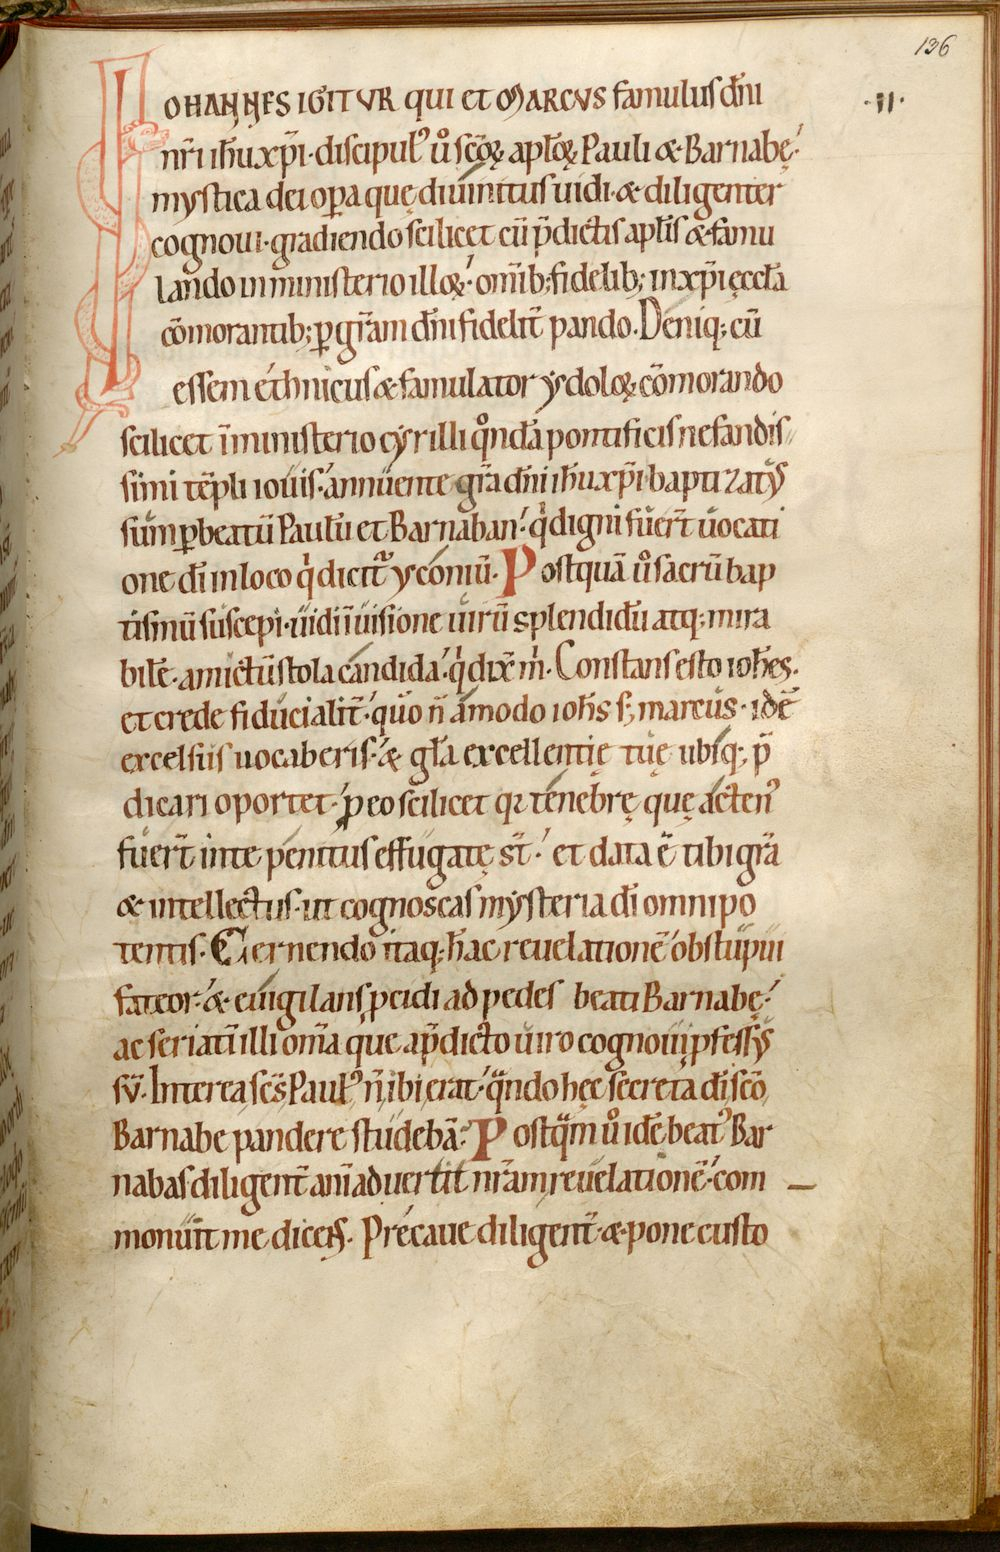 136
·II·
IOHANNES IGITUR qui et MARCUS famulus dñi
nr̄i ihu xp̄i· discipul᷒ ů sc̄oꝝ apl̄oꝝ Pauli & Barnabę·
mystica dei oꝑa quę diuinitus uidi· & diligenter
cognoui· gradiendo scilicet cū p̄dictis apl̄is & famu
lando in ministerio illoꝝ· om̄ib; fidelib; in xp̄i ęccl̄a
cōmorantib; ꝑ grām dñi fidelit̄ pando. Deniq; cū
essem ethnicus & famulator ydoloꝝ cōmorando
scilicet ī ministerio cyrilli qn̊dā pontificis nefandis-
simi tēpli iouis· annuente gr̄a dñi ihu xp̄i· baptizatus
sum ꝑ beatū Paulū et Barnaban· qͥ digni fuer̄t uocati
one dī in loco qͥ dicit᷑ yconiū. Postquā ů sacrū bap
tismū suscepi· uidi ī uisione uirū splendidū atq; mira
bilē· amictū stola candida· qͥ dix̄ mͥ. Constans esto ioħes·
et crede fiducialit̄· quo n̄ amodo ioħs s; marcus· idē
excelsus uocaberis· & gl̄a excellentię tuę ubiq; p̄
dicari oportet· ꝓ eo scilicet qꝛ tenebrę quę acten᷒
fuer̄t in te penitus effugatę st̄· et data ē tibi gr̄a
& intellectus· ut cognoscas mysteria dī omnipo
tentis. Cernendo itaq; hac reuelationē obstupui
fateor· & euigilans ꝓcidi ad pedes beati Barnabę·
ac seriatī illi om̄a que a p̄dicto uiro cognoui ꝓfessus
sū. Interea sc̄s Paul᷒ n̄ ibi erat· qͣndo hęc secreta dī sc̄o
Barnabe pandere studebā· Postqͣm ů idē beat᷒ Bar
nabas diligent̄ aīaduertit nr̄am reuelationē· com
monuit me dicens. Precaue diligent̄· & pone custo